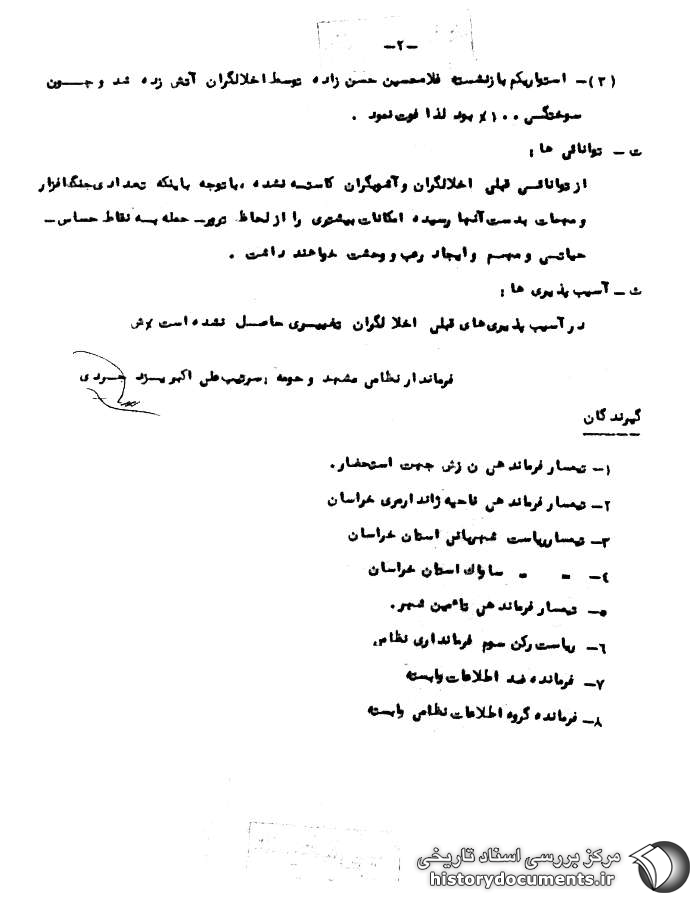 -۲-
(۳)- استواریکم بازنشسته غلامحسین حسن زاده توسط اخلالگران آتش زده شد و چـــون
سوختگی ۱۰۰٪ بود لذا فوت نمود .
ت - توانائی ها :
از توانائـی قبلی اخلالگران و آشوبگران کاسته نشده ، با توجه باینکه تعدادی جنگ افزار
و مهمات بدست آنها رسیده امکانات بیشتری را از لحاظ ترور - حمله بــه نقاط حساس -
حیاتـی و مهـم و ایجاد رعب و وحشت خواهند داشت .
ث - آسیب پذیری ها :
در آسیب پذیری های قبلی اخلالگران تغییــری حاصــل نشده است
فرماندار نظامی مشهد و حومه : سرتیپ علی اکبر یــزد جــردی
گیرندگان
۱- تیمسار فرماندهی ن زش جهت استحضار.
۲- تیمسار فرماندهی ناحیه ژاندارمری خراسان
۳- تیمسار ریاست شهربانی استان خراسان
۴- " " ساواک استان خراسان
۵- تیمسار فرماندهی تامین شهر.
۶- ریاست رکن سوم فرمانداری نظامی
۷- فرمانده ضد اطلاعات وابسته
۸- فرمانده گروه اطلاعات نظامی وابسته
مرکز بررسی اسناد تاریخی
historydocuments.ir